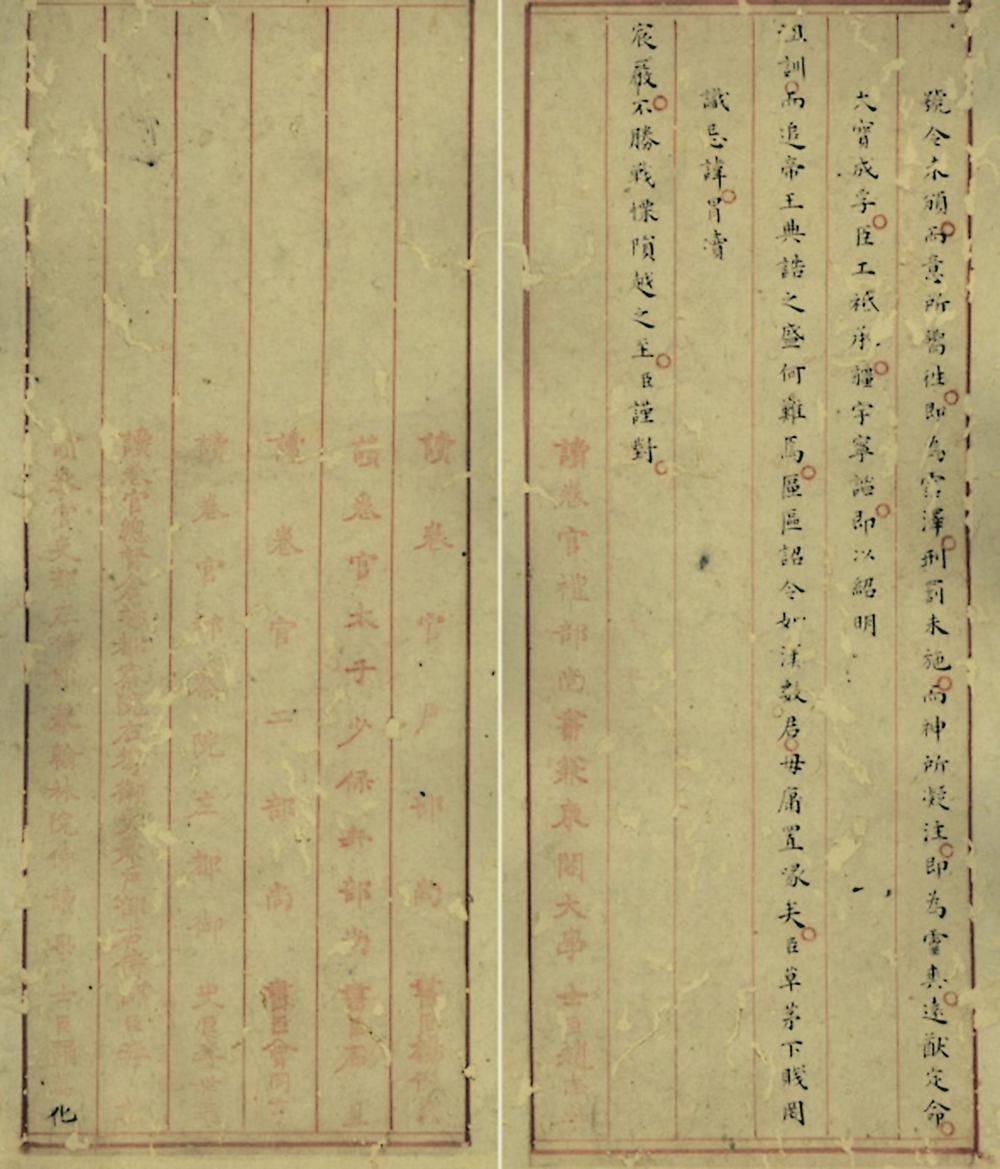 號令未頒而意所嘗往即為澤刑罰未施而神所凝注即為靈爽遠猷定命
大寶成孚臣工祗承疆宇寧謐即以紹明
祖訓而追帝王典誥之盛何難焉區區詔令如漢君毋庸置喙矣臣草茅下賤罔
識忌諱冒瀆
宸嚴不勝戰慄隕越之至臣謹對
讀卷官禮部尚書兼東閣大學士臣趙志
讀卷官戶部尚書臣楊俊
讀卷官太子少保兵部尚書臣石星
讀卷官工部尚書臣曾同亨
讀卷官都察院左都御史臣李世達
讀卷官總督倉場都察院右都御史
讀卷官吏部左侍郎兼翰林院侍讀學士臣羅
化